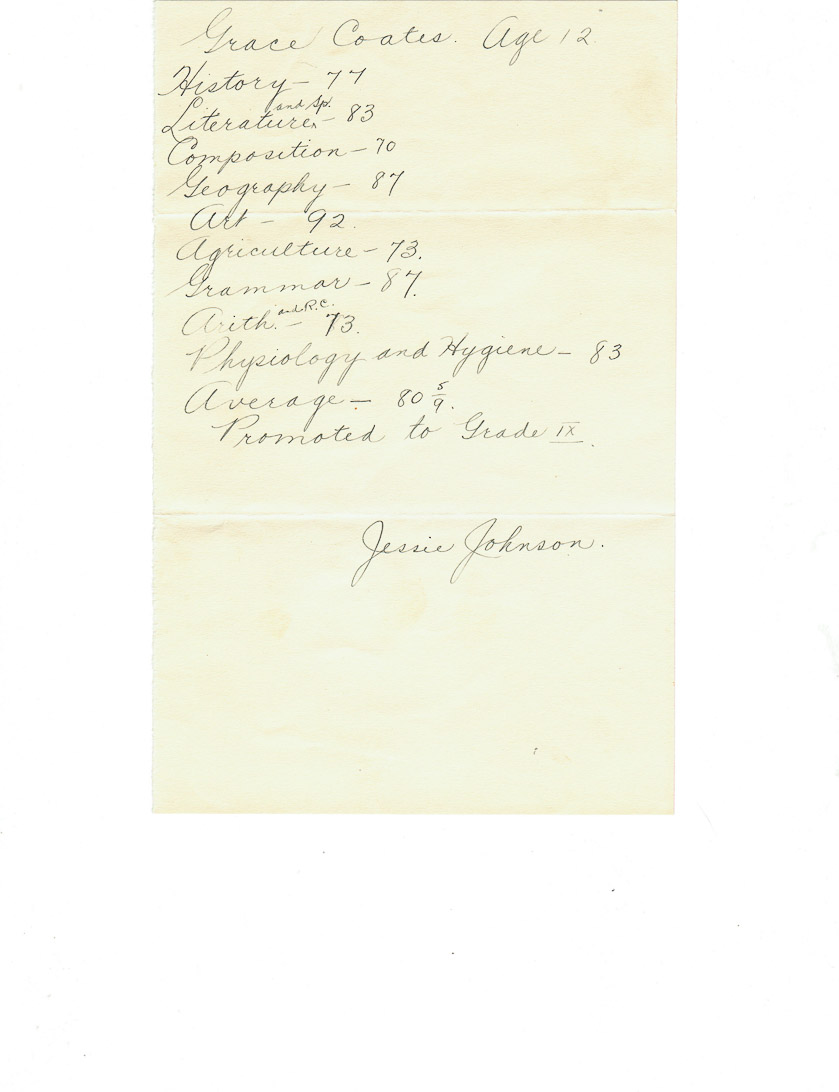 Grace Coates. Age 12.
History - 77
Literature and Sp. - 83
Composition - 70
Geography - 87
Art - 92.
Agriculture - 73.
Grammar - 87.
Arith. and R.C. - 73.
Physiology and Hygiene - 83
Average - 80 5/9.
Promoted to Grade IX.
Jessie Johnson.